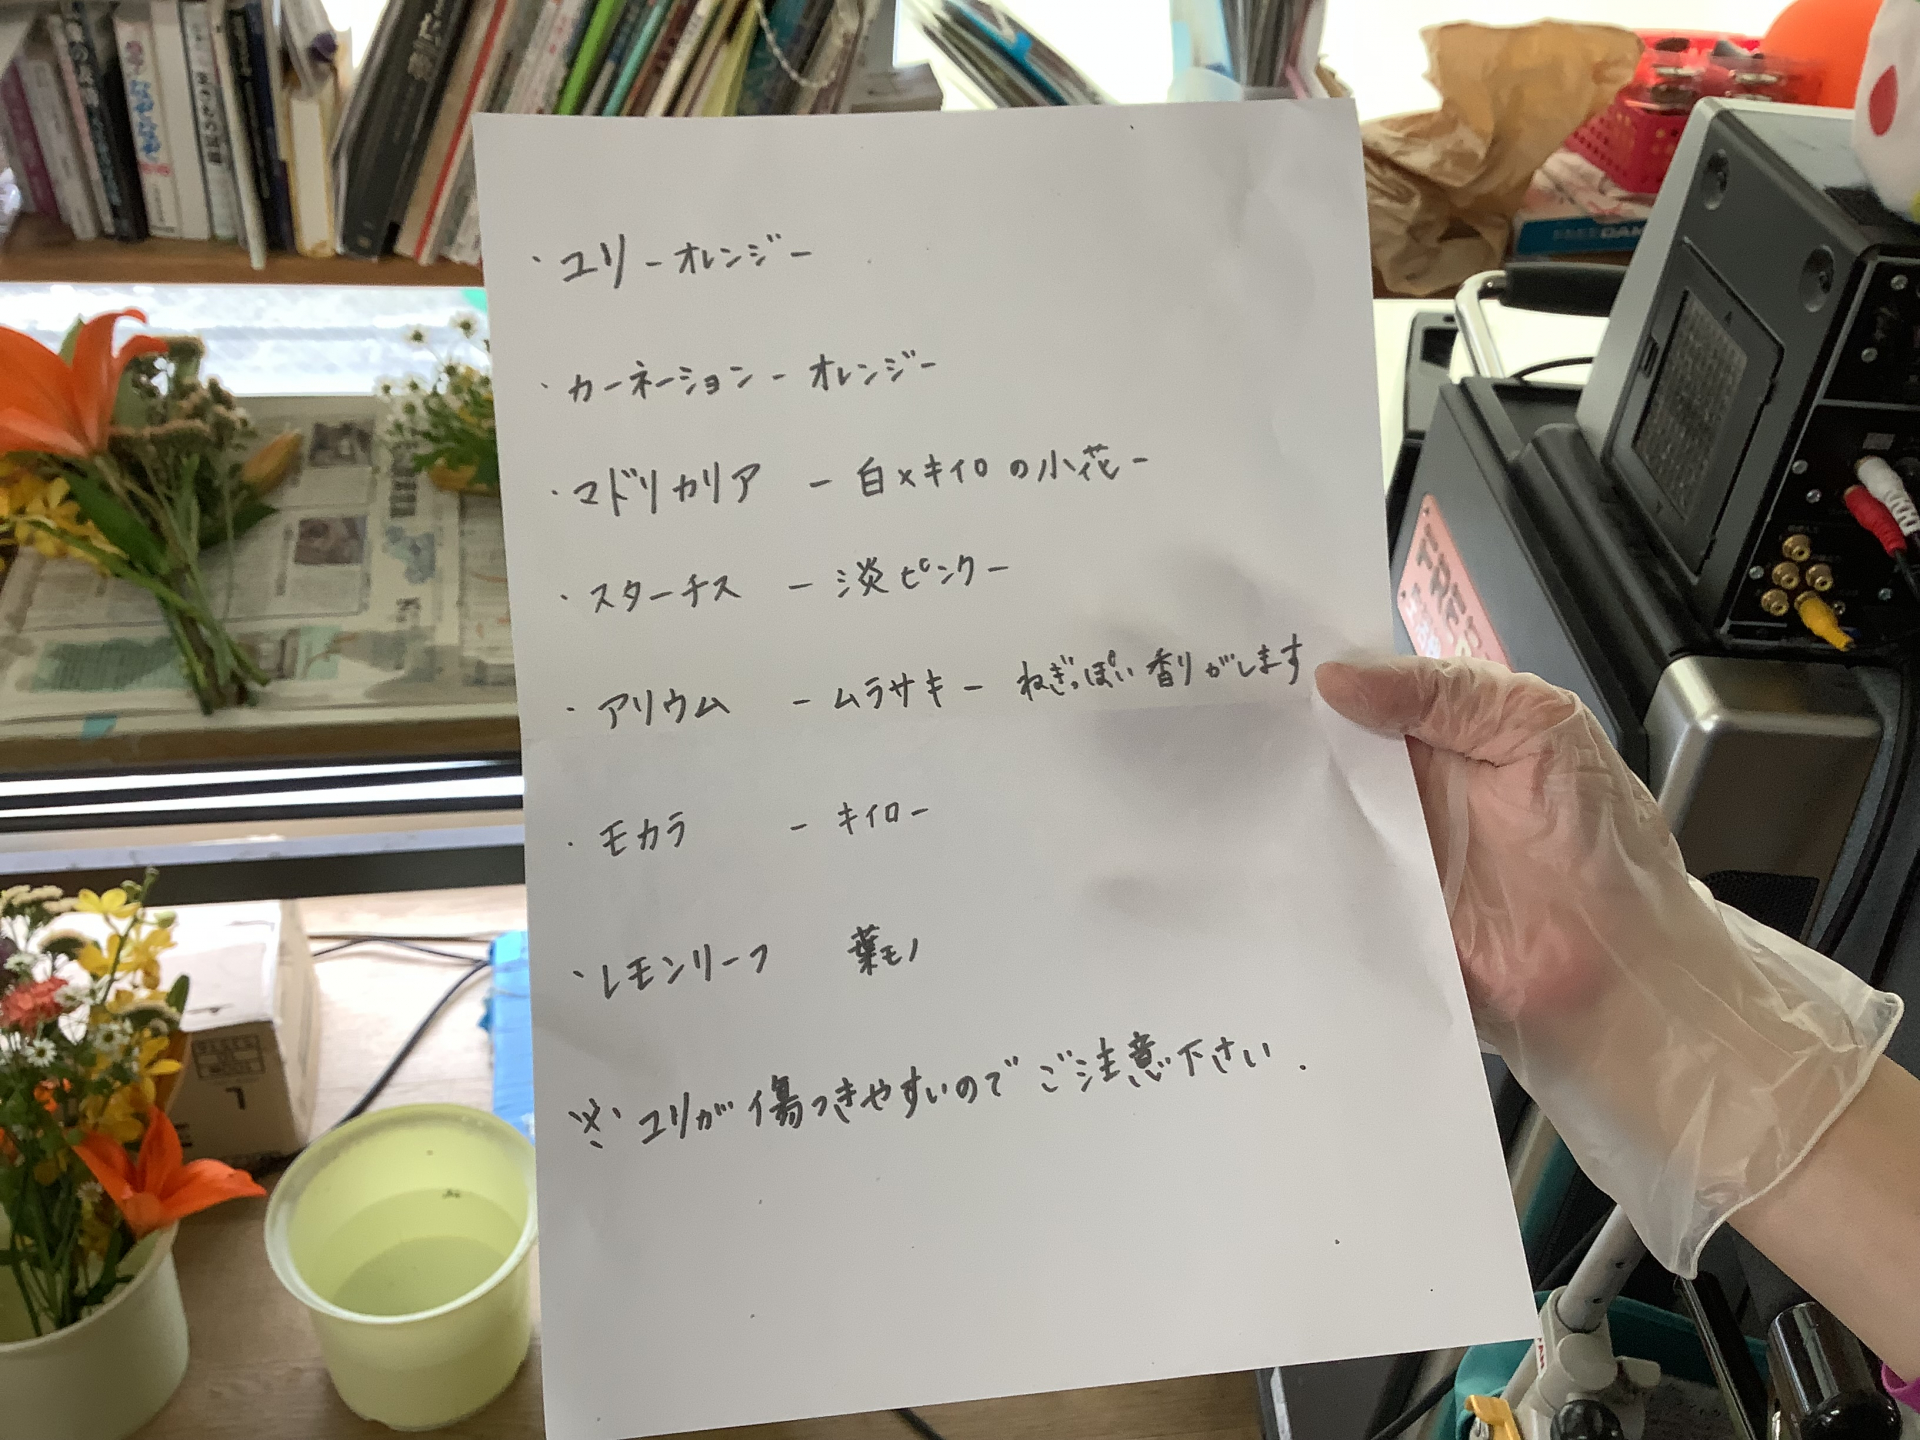 ・ユリ －オレンジ－
・カーネーション － オレンジ－
・マドリカリア － 白×キイロの小花－
・スターチス － 淡ピンク－
・アリウム － ムラサキ－ ねぎっぽい香りがします
・モカラ － キイロ－
・レモンリーフ 葉モノ
※ ユリが傷つきやすいのでご注意下さい.